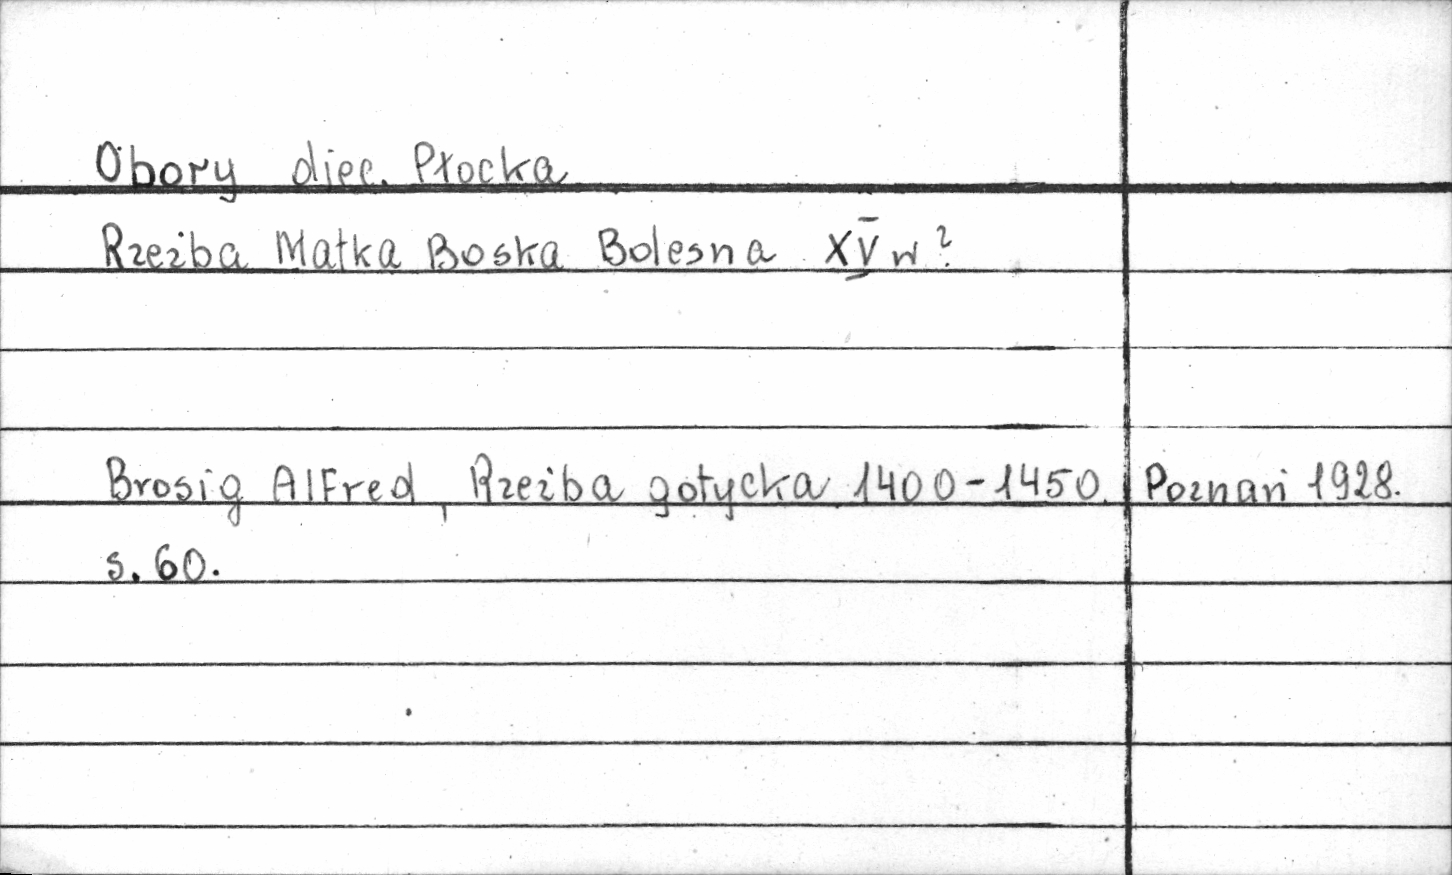 Obory diec. Płocka
Rzeźba Matka Boska Bolesna XV w?
Brosig Alfred, Rzeźba gotycka 1400-1450. Poznań 1928.
s. 60.